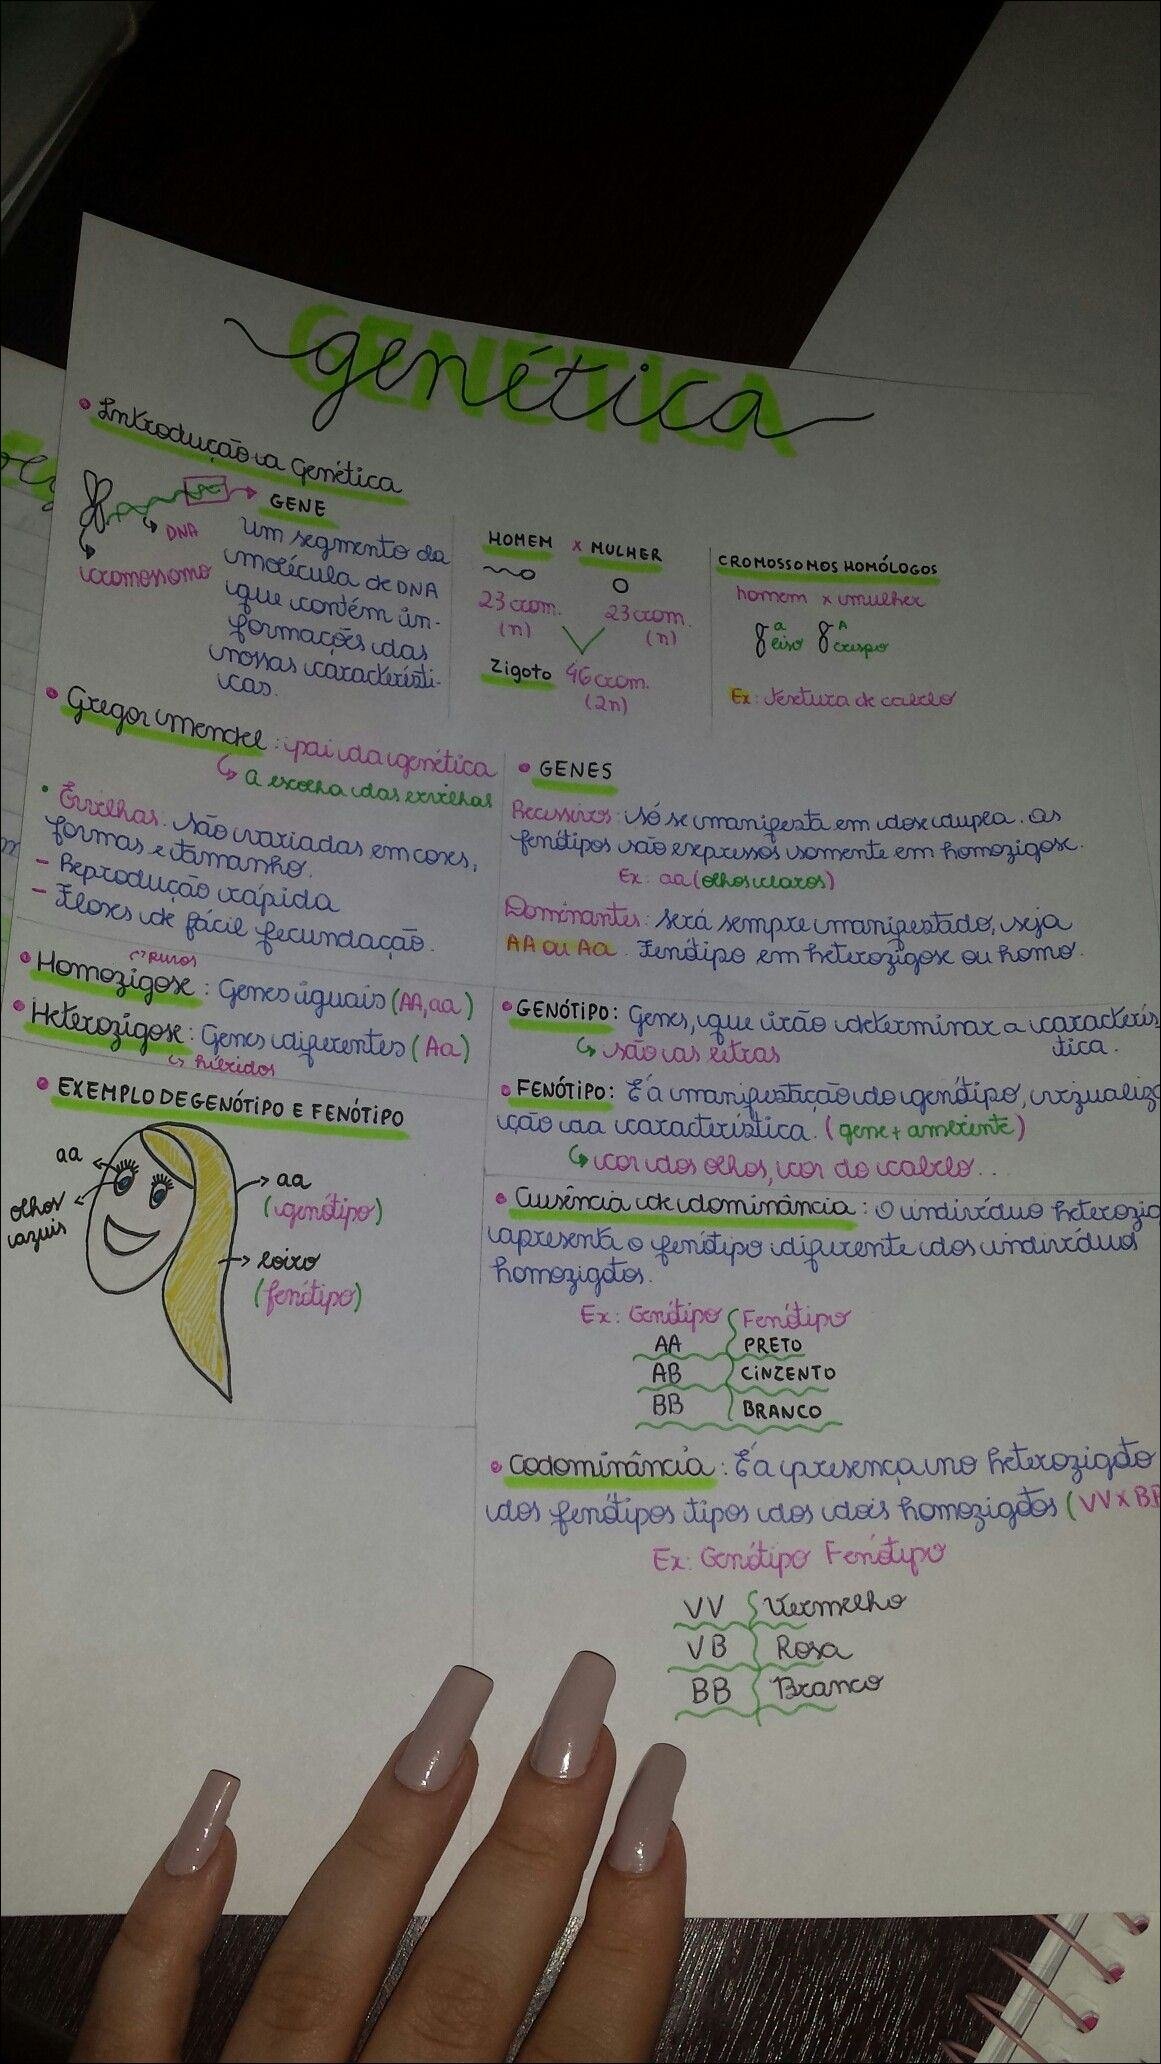 GENÉTICA
genética
• Introdução a Genética
GENE
DNA
cromossomo
um segmento da
molécula de DNA
que contém in-
formações das
nossas característi-
cas.
HOMEM x MULHER
23 crom. 23 crom.
(n) (n)
Zigoto 46 crom.
(2n)
CROMOSSOMOS HOMÓLOGOS
homem x mulher
a A
liso crespo
Ex: Textura de cabelo
• Gregor Mendel: pai da genética
A escolha das ervilhas
• Ervilhas: São variadas em cores,
formas e tamanho.
- Reprodução rápida
- Flores de fácil fecundação.
• GENES
Recessivos: só se manifesta em dose dupla. Os
fenótipos são expressos somente em homozigose.
Ex: aa (olhos claros)
Dominantes: será sempre manifestado, seja
AA ou Aa. Fenótipo em heterozigose ou homo.
puros
• Homozigose: Genes iguais (AA, aa)
• Heterozigose: Genes diferentes (Aa)
híbridos
• GENÓTIPO: Genes, que irão determinar a caracterís
tica.
são as letras
• FENÓTIPO: É a manifestação do genótipo, vizualiza
ção da característica. (gene + ambiente)
cor dos olhos, cor do cabelo...
• EXEMPLO DE GENÓTIPO E FENÓTIPO
aa
olhos
azuis
aa
(genótipo)
loiro
(fenótipo)
• Ausência de dominância: O indivíduo heterozig
apresenta o fenótipo diferente dos indivíduos
homozigotos.
Ex: Genótipo Fenótipo
AA PRETO
AB CINZENTO
BB BRANCO
• Codominância: É a presença no heterozigoto
dos fenótipos tipos dos dois homozigotos (VV x BB
Ex: Genótipo Fenótipo
VV Vermelho
VB Rosa
BB Branco